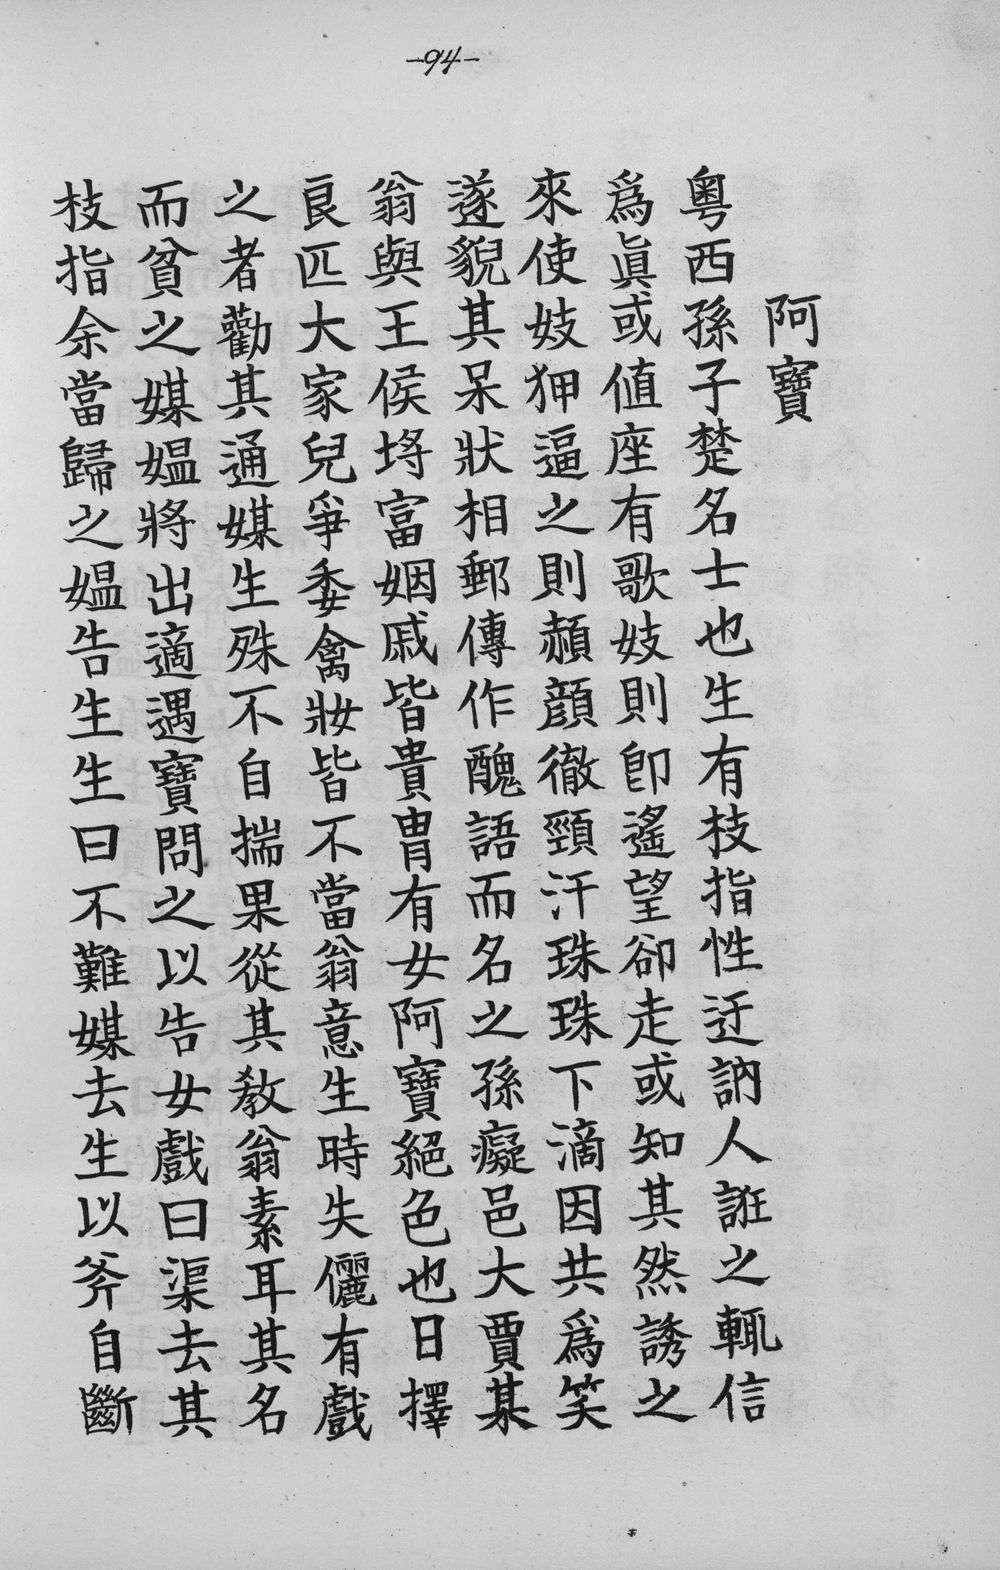 -94-
阿寶
粤西孫子楚名士也生有枝指性迂訥人誑之輒信
爲眞或値座有歌妓則卽遙望卻走或知其然誘之
來使妓狎逼之則頳顔徹頸汗珠珠下滴因共爲笑
遂貌其呆狀相郵傳作醜語而名之孫癡邑大賈某
翁與王侯埓富姻戚皆貴胄有女阿寶絕色也日擇
良匹大家兒爭委禽妝皆不當翁意生時失儷有戲
之者勸其通媒生殊不自揣果從其敎翁素耳其名
而貧之媒媼將出適遇寶問之以告女戲曰渠去其
枝指余當歸之媼告生生曰不難媒去生以斧自斷